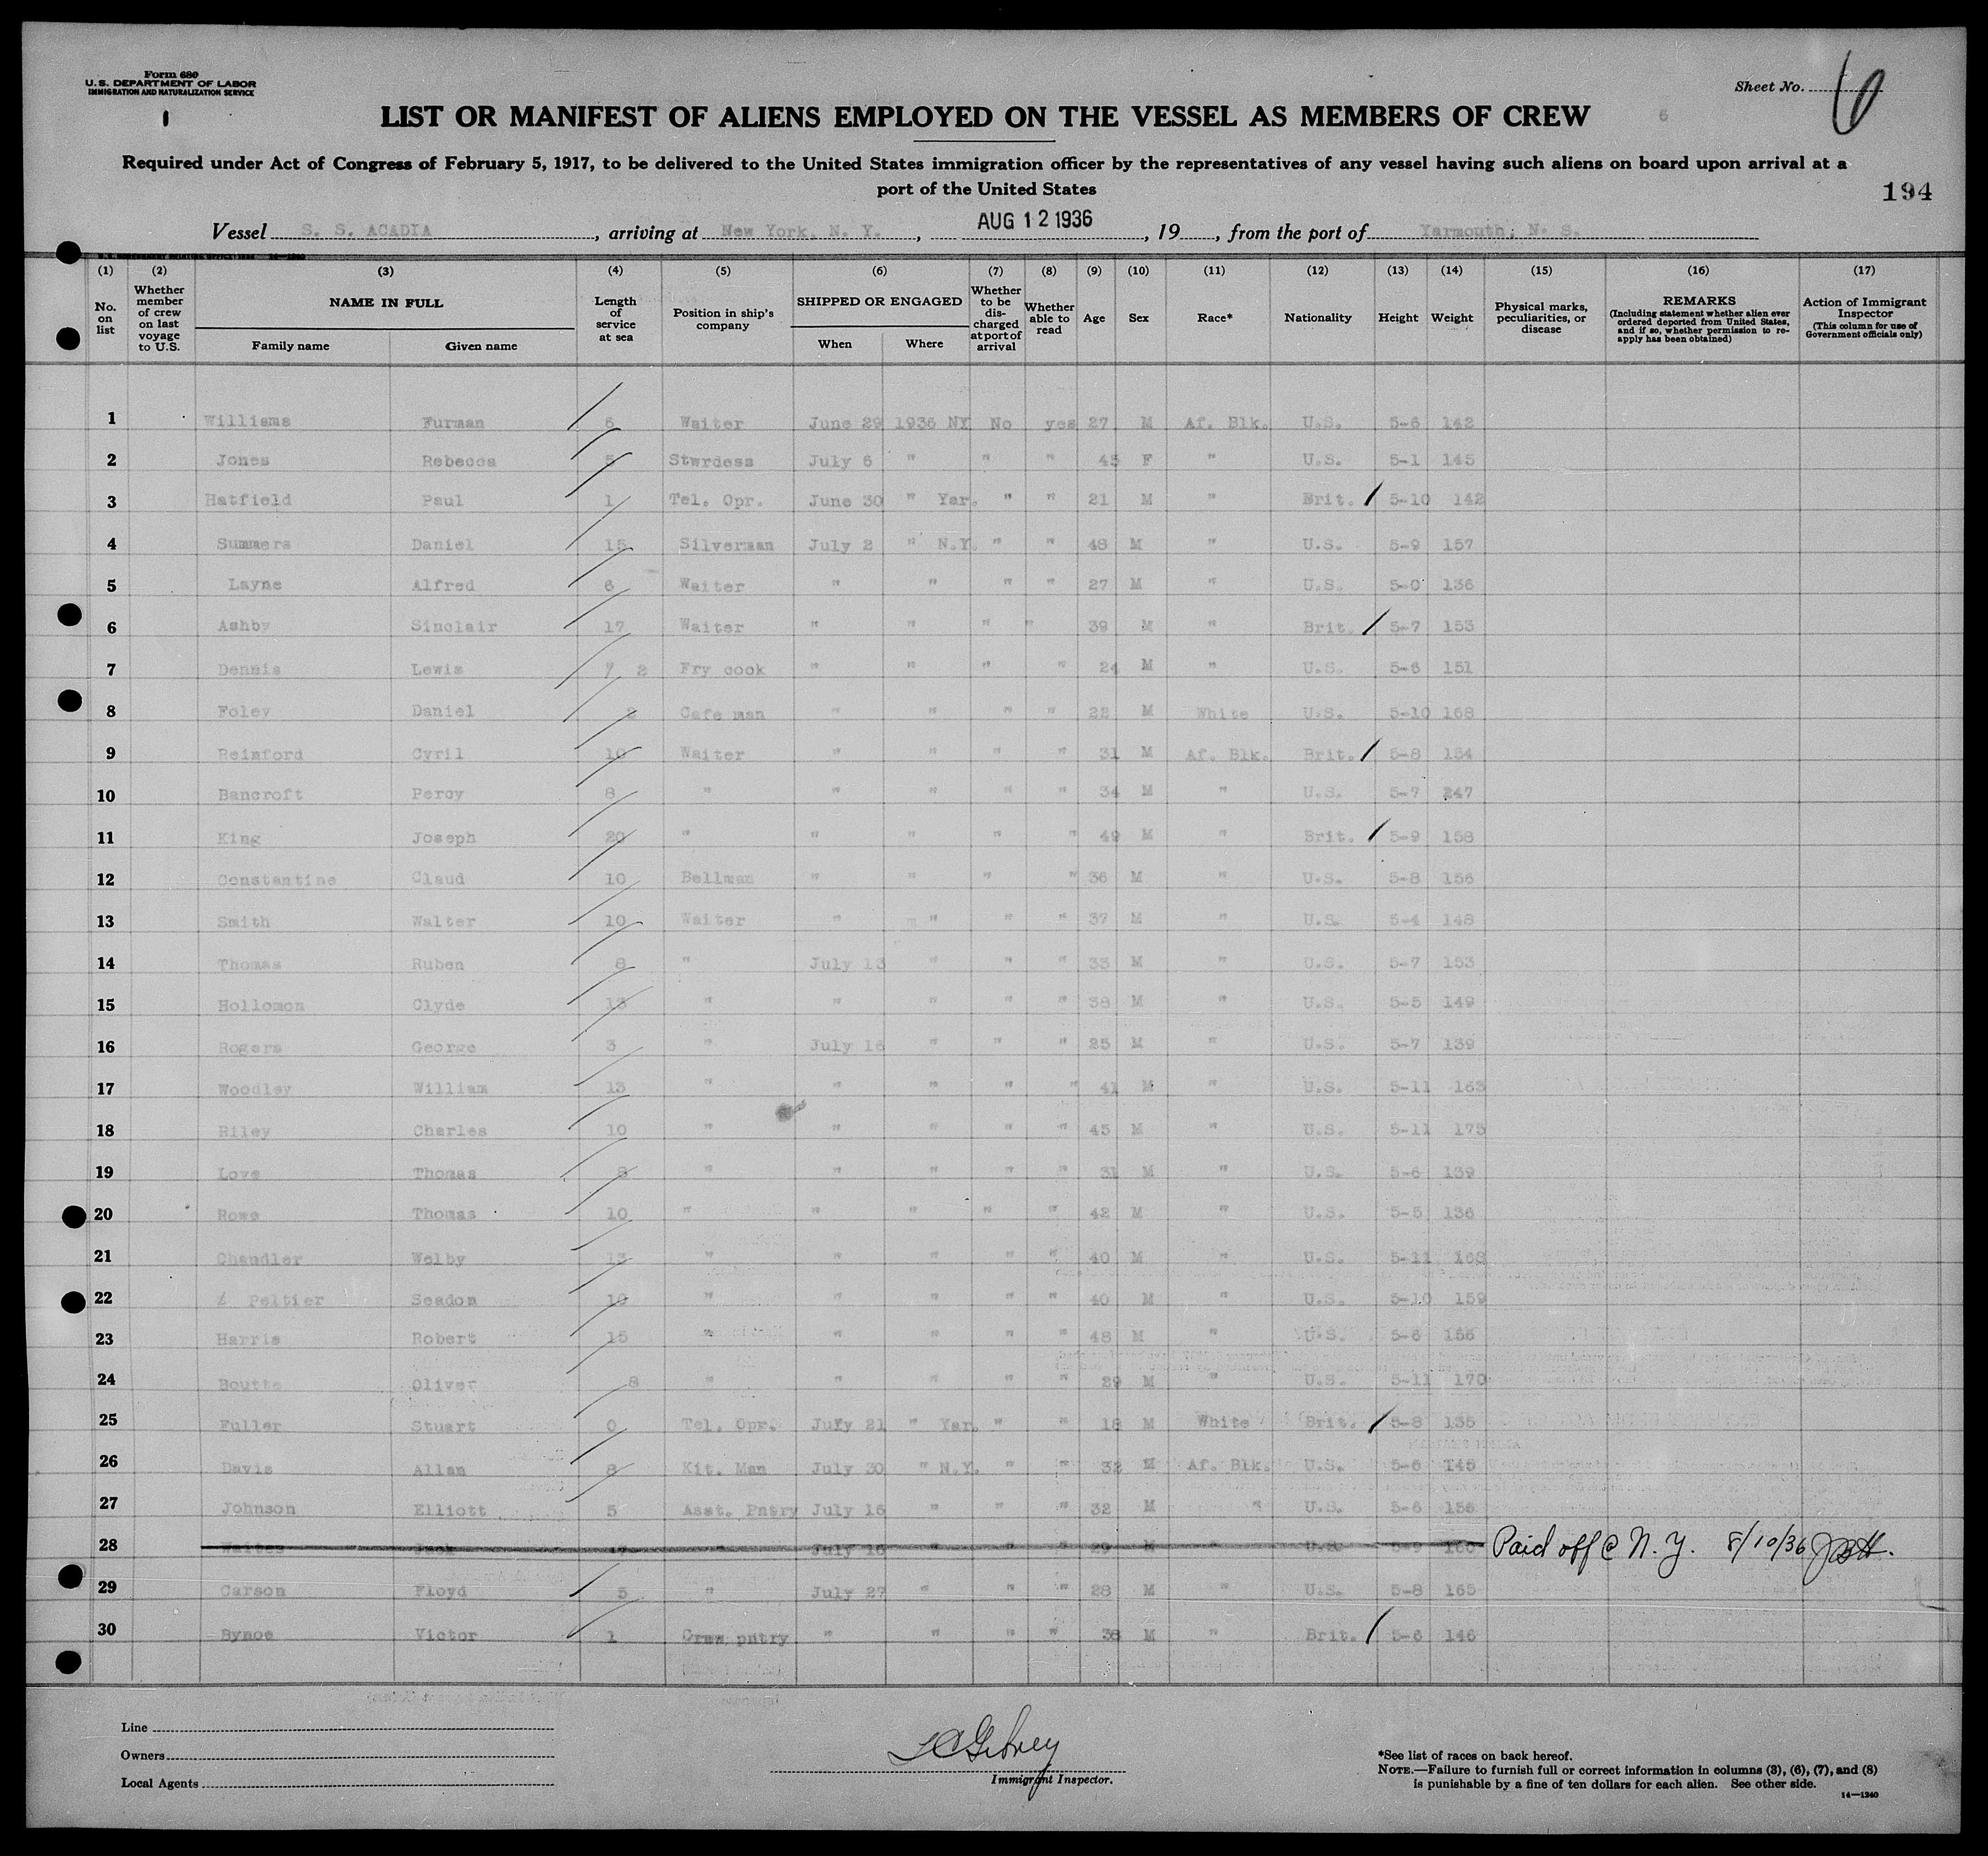 Form 680
U. S. DEPARTMENT OF LABOR
IMMIGRATION AND NATURALIZATION SERVICE
1
Sheet No. 6
LIST OR MANIFEST OF ALIENS EMPLOYED ON THE VESSEL AS MEMBERS OF CREW
6
Required under Act of Congress of February 5, 1917, to be delivered to the United States immigration officer by the representatives of any vessel having such aliens on board upon arrival at a
port of the United States
194
Vessel S. S. ACADIA, arriving at New York, N. Y., AUG 12 1936, 19, from the port of Yarmouth, N. S.
(1) (2) (3) (4) (5) (6) (7) (8) (9) (10) (11) (12) (13) (14) (15) (16) (17)
No. on list
Whether member of crew on last voyage to U.S.
NAME IN FULL
Family name Given name
Length of service at sea
Position in ship's company
SHIPPED OR ENGAGED
When Where
Whether to be discharged at port of arrival
Whether able to read
Age
Sex
Race*
Nationality
Height
Weight
Physical marks, peculiarities, or disease
REMARKS
(Including statement whether alien ever ordered deported from United States, and if so, whether permission to re-apply has been obtained)
Action of Immigrant Inspector
(This column for use of Government officials only)
1 Williams Furman 6 Waiter June 29 1936 NY No yes 27 M Af. Blk. U.S. 5-6 142
2 Jones Rebecca 5 Stwrdess July 6 " " " 45 F " U.S. 5-1 145
3 Hatfield Paul 1 Tel. Opr. June 30 " Yar. " " 21 M " Brit. / 5-10 142
4 Summers Daniel 15 Silverman July 2 " N.Y. " " 48 M " U.S. 5-9 157
5 Layne Alfred 6 Waiter " " " " 27 M " U.S. 5-0 136
6 Ashby Sinclair 17 Waiter " " " " 39 M " Brit. / 5-7 153
7 Dennis Lewis 2 Fry cook " " " " 24 M " U.S. 5-6 151
8 Foley Daniel 2 Cafe man " " " " 22 M White U.S. 5-10 168
9 Reinford Cyril 10 Waiter " " " " 31 M Af. Blk. Brit. / 5-8 154
10 Bancroft Percy 8 " " " " " 34 M " U.S. 5-7 247
11 King Joseph 20 " " " " " 49 M " Brit. / 5-9 158
12 Constantine Claud 10 Bellman " " " " 36 M " U.S. 5-8 156
13 Smith Walter 10 Waiter " " " " 37 M " U.S. 5-4 148
14 Thomas Ruben 8 " July 13 " " " 33 M " U.S. 5-7 153
15 Hollomon Clyde 13 " " " " " 38 M " U.S. 5-5 149
16 Rogers George 3 " July 16 " " " 25 M " U.S. 5-7 139
17 Woodley William 13 " " " " " 41 M " U.S. 5-11 163
18 Riley Charles 10 " " " " " 45 M " U.S. 5-11 175
19 Love Thomas 8 " " " " " 31 M " U.S. 5-6 139
20 Rowe Thomas 10 " " " " " 42 M " U.S. 5-5 136
21 Chandler Welby 13 " " " " " 40 M " U.S. 5-11 168
22 Peltier Seadon 10 " " " " " 40 M " U.S. 5-10 159
23 Harris Robert 15 " " " " " 48 M " U.S. 5-6 156
24 Boutte Oliver 8 " " " " " 29 M " U.S. 5-11 170
25 Fuller Stuart 0 Tel. Opr. July 21 " Yar. " " 18 M White Brit. / 5-8 135
26 Davis Allan 8 Kit. Man July 30 " N.Y. " " 32 M Af. Blk. U.S. 5-6 145
27 Johnson Elliott 5 Asst. Pntry July 16 " " " 32 M " U.S. 5-6 156
28 July 16 " " " 29 M " U.S. Paid off @ N. Y. 8/10/36 JBH.
29 Carson Floyd 5 " July 27 " " " 28 M " U.S. 5-8 165
30 Bynoe Victor 1 Crew pntry " " " " 38 M " Brit. / 5-6 146
Line
Owners
Local Agents
Immigrant Inspector.
*See list of races on back hereof.
NOTE.—Failure to furnish full or correct information in columns (3), (6), (7), and (8)
is punishable by a fine of ten dollars for each alien. See other side.
14—1240